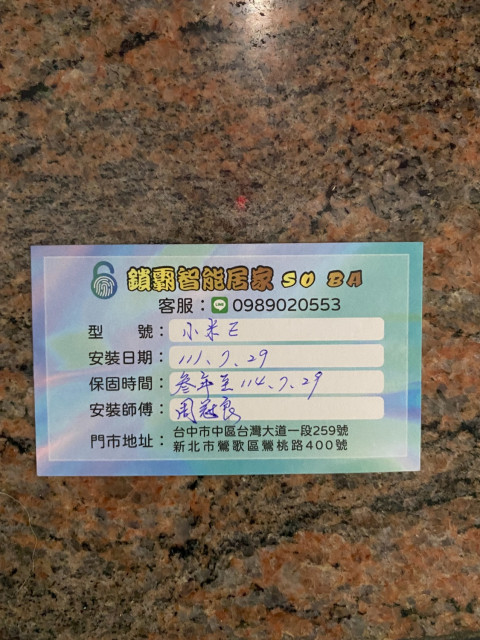 鎖霸智能居家 SO BA
客服：LINE 0989020553
型 號：小米E
安裝日期：111、7、29
保固時間：叄年至114、7、29
安裝師傅：周冠良
門市地址：台中市中區台灣大道一段259號
新北市鶯歌區鶯桃路400號